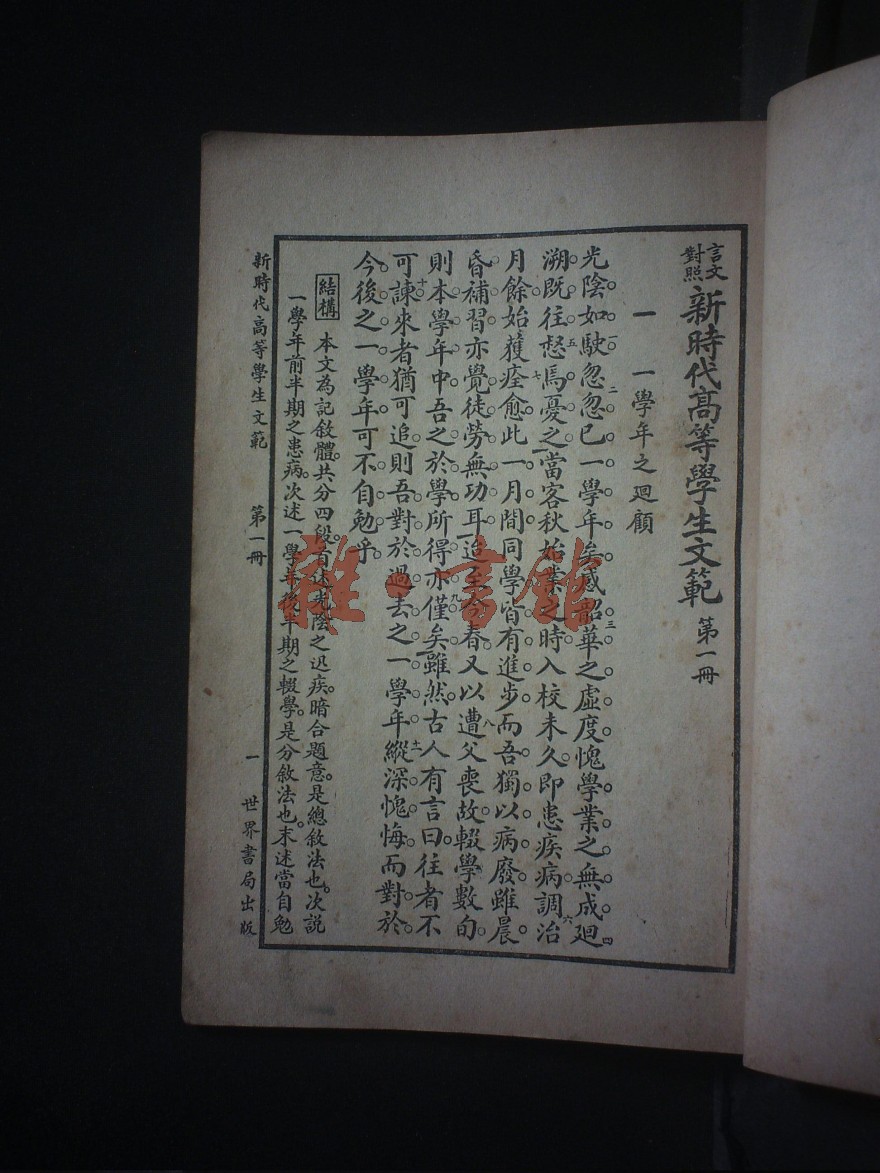 言文對照新時代高等學生文範 第一冊
一 一學年之廻顧
光陰如駛。忽忽已一學年矣。感韶華之虛度。愧學業之無成。廻
溯既往。惄焉憂之。當客秋始業之時。入校未久。即患疾病。調治
月餘。始獲痊愈。此一月間。同學皆有進步。而吾獨以病廢。雖晨
昏補習。亦覺徒勞無功耳。迨至今春。又以遭父喪。故輟學數旬。
則本學年中。吾之於學。所得亦僅矣。雖然。古人有言曰。往者不
可諫。來者猶可追。則吾對於過去之一學年。縱深愧悔。而對於
今後之一學年。可不自勉乎。
結構 本文為記敘體。共分四段。首述光陰之迅疾。暗合題意。是總敘法也。次說
一學年前半期之患病。次述一學年後半期之輟學。是分敘法也。末述當自勉
新時代高等學生文範 第一冊 一 世界書局出版
雜·書館